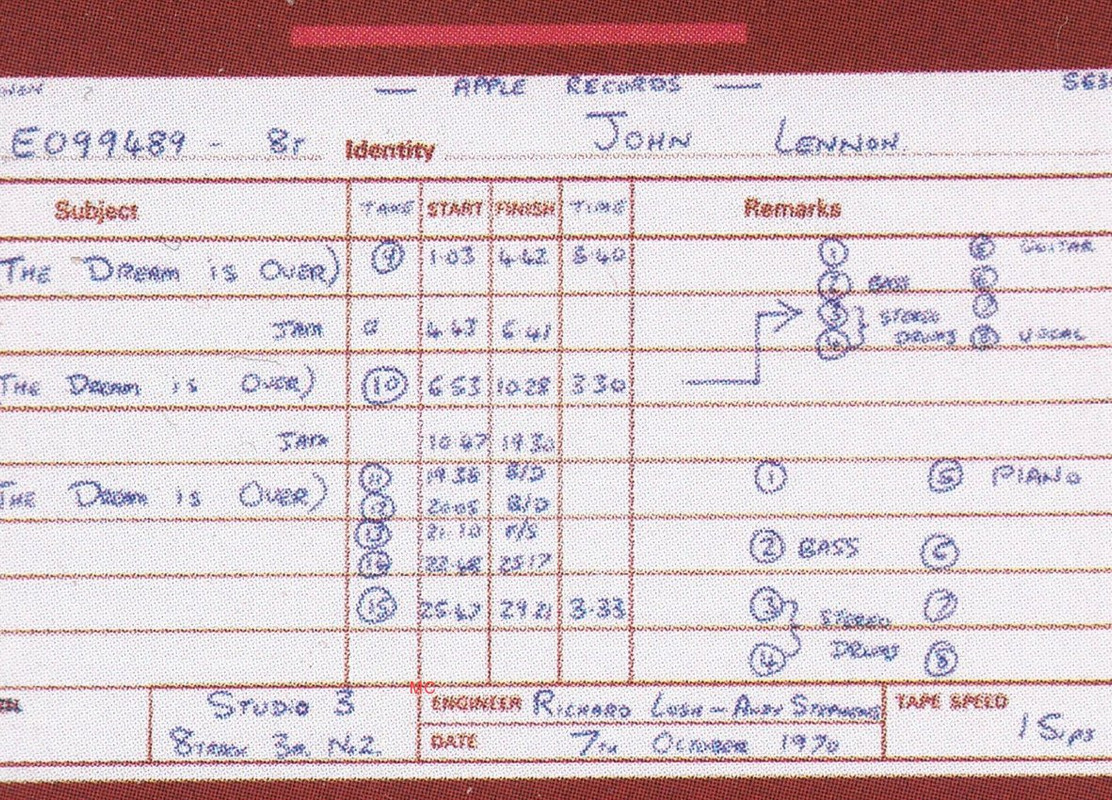 — APPLE RECORDS —
E099489 - 8T Identity JOHN LENNON.
Subject TAKE START FINISH TIME Remarks
THE DREAM IS OVER) 9 1.03 4.42 3.40 1 5 GUITAR
2 BASS 6
JAM 4.43 6.41 3 } STEREO 7
4 DRUMS 8 VOCAL
THE DREAM IS OVER) 10 6 53 10 28 3 30
JAM 10 47 19 30
THE DREAM IS OVER) 11 19 36 B/D 1 5 PIANO
12 20 05 B/D
13 21 10 F/S
14 22 48 25 17 2 BASS 6
15 25 47 29 21 3.33 3 } STEREO 7
4 DRUMS 8
STUDIO 3 ENGINEER RICHARD LUSH - ANDY STEPHENS TAPE SPEED
8 TRACK 3M No 2. DATE 7TH OCTOBER 1970 15 IPS